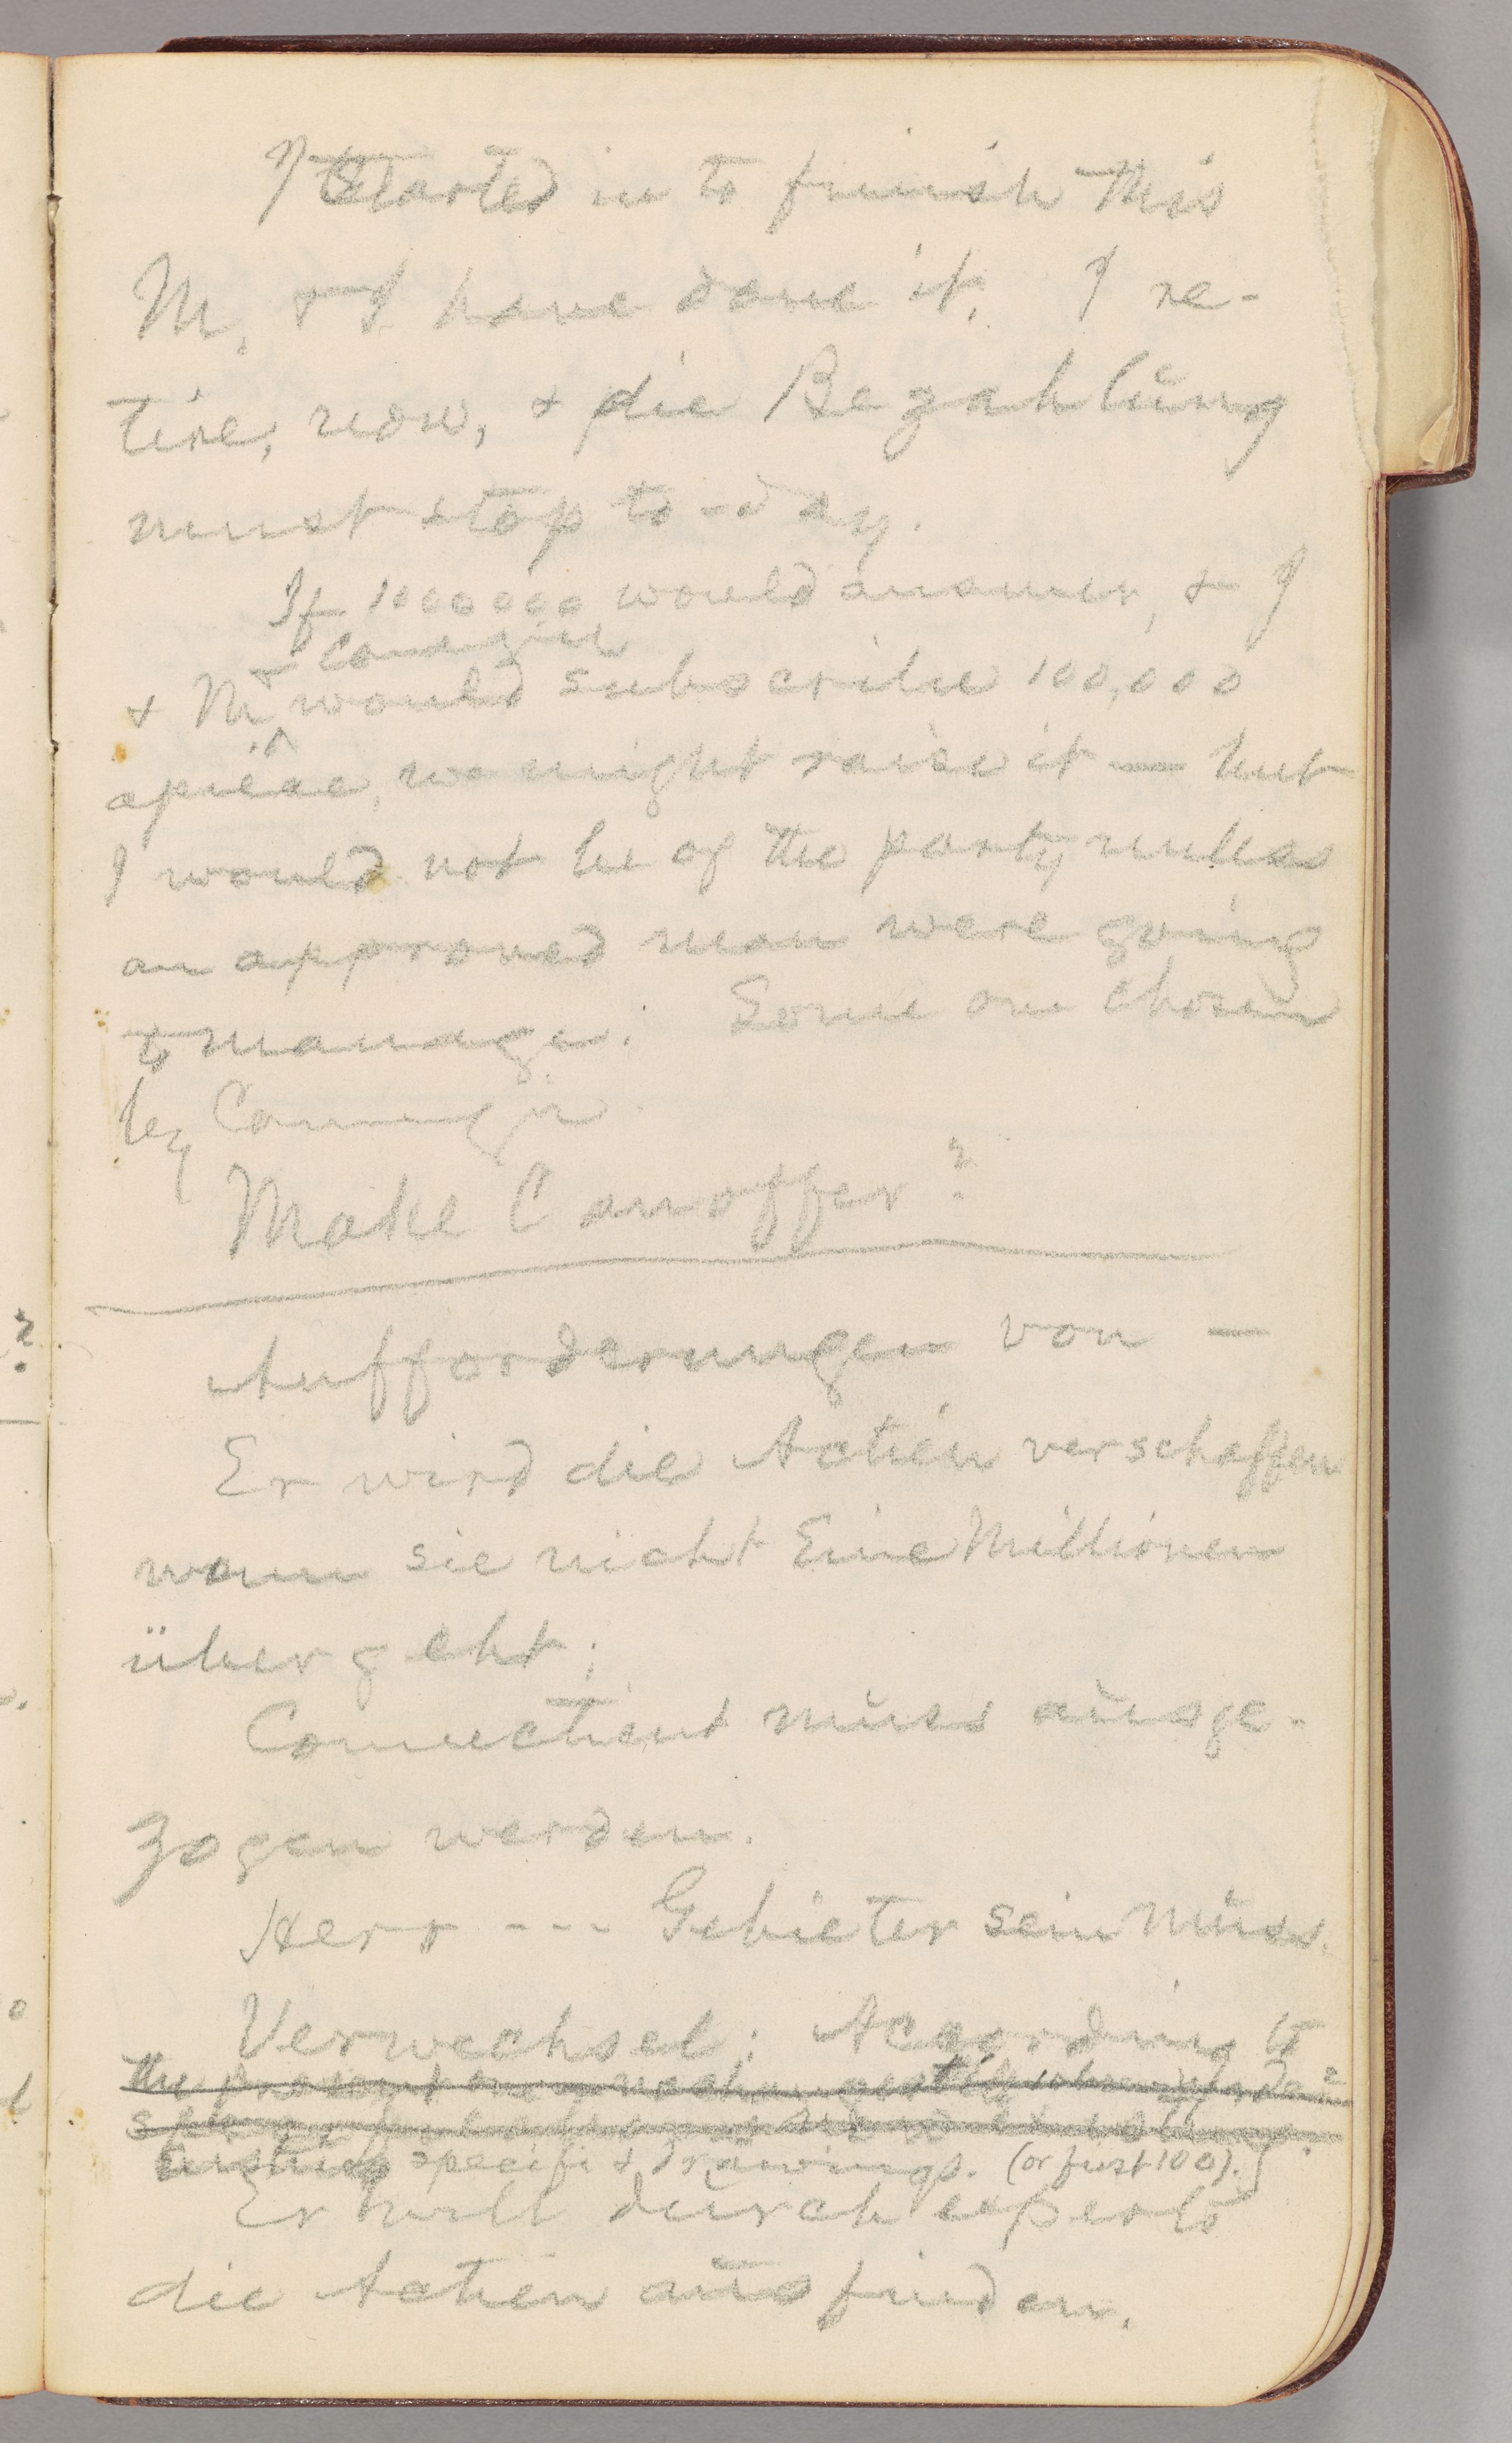 I started in to finish this
M, & I have done it. I re-
tire, now, & die Bezahlŭng
must stop to-day.
If 1000000 would answer, & I
& Carnegie
& M would subscribe 100,000
apiece, we might raise it — but
I would not be of the party unless
an approved man were going
to manage. Some one chosen
by Carnegie.
Make C an offer?
Aufforderungen von —
Er wird die Actien verschaffen
wann sie nicht Eine Millionen
übergeht;
Connecticut mŭss aŭsge-
zogen werden.
Herr --- Gebieter sein mŭss.
Verwechsel: According to
the present
specifi & drawings. (or first 100).]
Er will dŭrch experts
die Actien aŭsfinden.